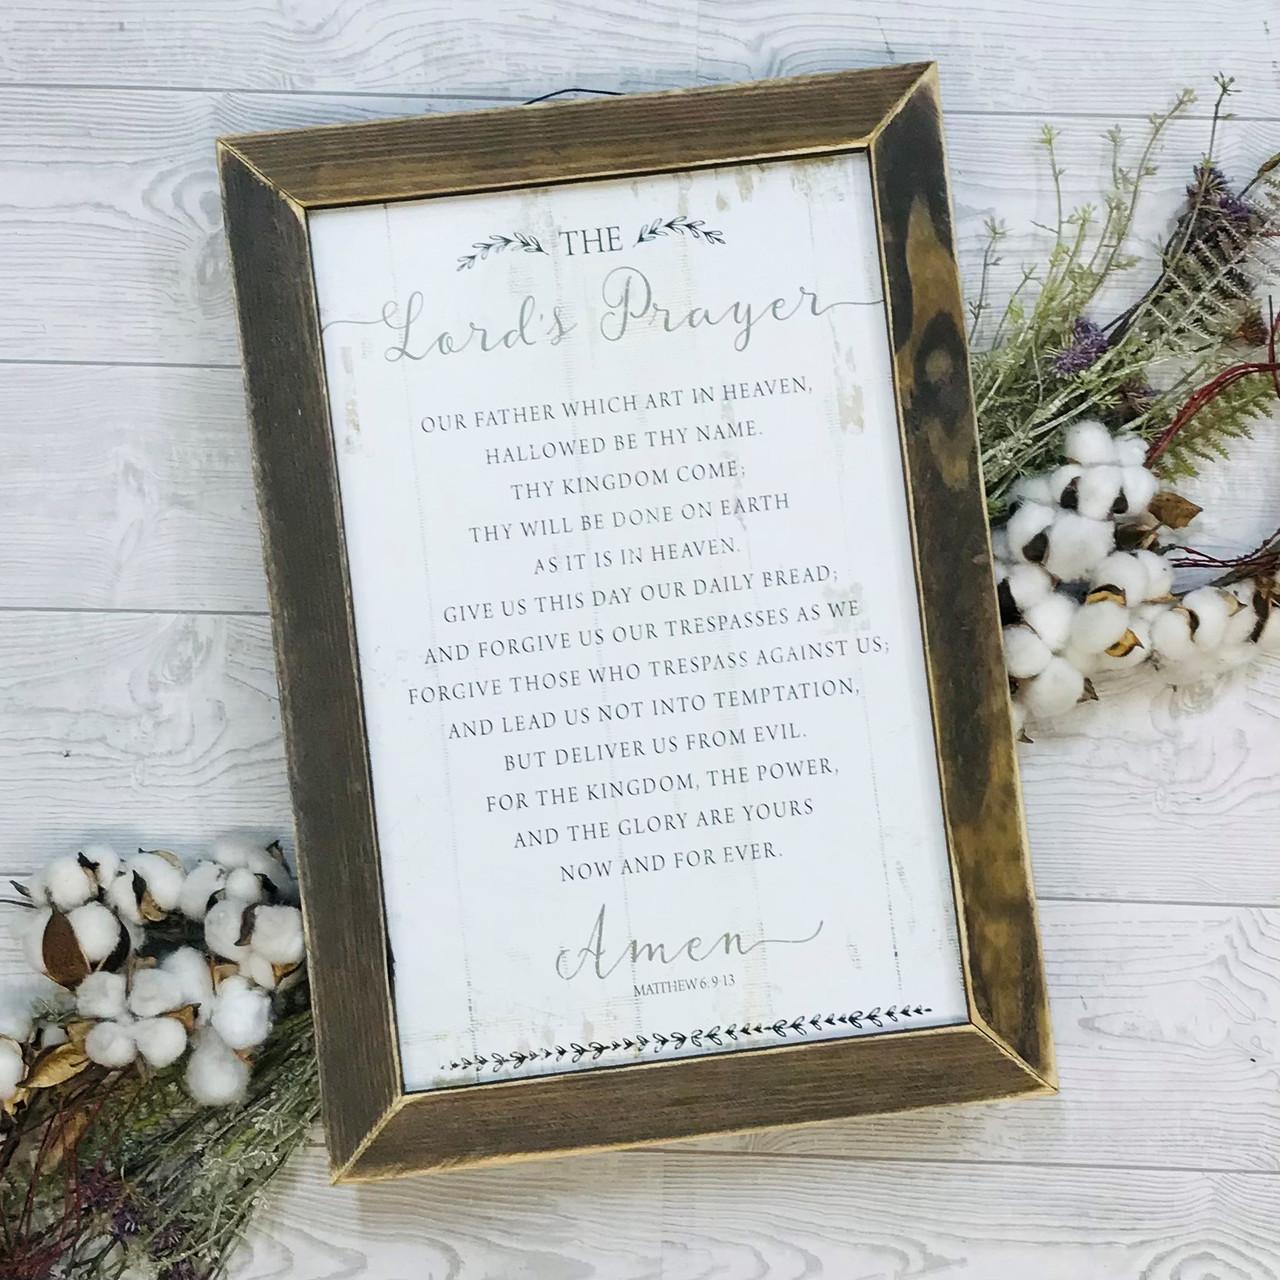 THE
Lord's Prayer
OUR FATHER WHICH ART IN HEAVEN,
HALLOWED BE THY NAME.
THY KINGDOM COME;
THY WILL BE DONE ON EARTH
AS IT IS IN HEAVEN.
GIVE US THIS DAY OUR DAILY BREAD;
AND FORGIVE US OUR TRESPASSES AS WE
FORGIVE THOSE WHO TRESPASS AGAINST US;
AND LEAD US NOT INTO TEMPTATION,
BUT DELIVER US FROM EVIL.
FOR THE KINGDOM, THE POWER,
AND THE GLORY ARE YOURS
NOW AND FOR EVER.
Amen
MATTHEW 6:9-13